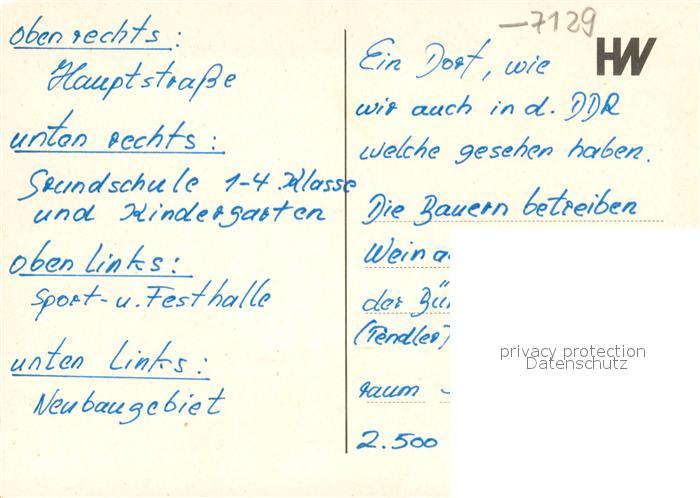 oben rechts :
Hauptstraße
unten rechts :
Grundschule 1-4. Klasse
und Kindergarten
oben links :
Sport- u. Festhalle
unten links :
Neubaugebiet
7129
HW
Ein Dorf, wie
wir auch in d. DDR
welche gesehen haben.
Die Bauern betreiben
Wein
der
(Pendler)
raum -
2.500
privacy protection
Datenschutz